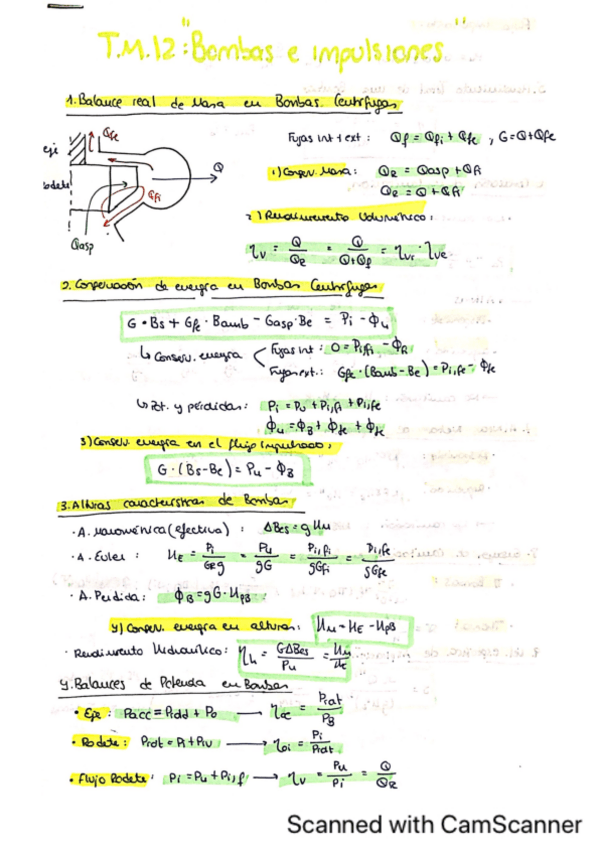 T.M.12: "Bombas e impulsiones"
1. Balance real de Masa en Bombas Centrífugas
eje
rodete
Qfe
Qfi
Q
Qasp
Fugas int + ext : Qf = Qfi + Qfe , G=Q+Qfe
1) Conserv. Masa: QR = Qasp + Qfi
QR = Q + Qfi
2) Rendimiento Volumétrico:
ηv = Q/QR = Q/(Q+Qf) = ηvi · ηve
2. Conservación de energía en Bombas Centrífugas
G·Bs + Gfe · Bamb - Gasp·Be = Pi - Φu
↳ Conserv. energía < Fugas int : 0 = Pi,fi - Φfi
Fugas ext.: Gfe · (Bamb - Be) = Pi,fe - Φfe
↳ Pot. y pérdidas: Pi = Pu + Pi,fi + Pi,fe
Φu = ΦB + Φfe + Φfe
3) Conserv. energía en el flujo impulsado:
G · (Bs-Be) = Pu - ΦB
3. Alturas características de Bombas
· A. Manométrica (efectiva) : ΔBes = g Hm
· A. Euler : HE = Pi/(GR g) = Pu/(gG) = Pi,fi/(gGfi) = Pi,fe/(gGfe)
· A. Perdida : ΦB = gG · HpB
4) Conserv. energía en alturas: Hm = HE - HpB
· Rendimiento Hidráulico: ηh = GΔBes/Pu = Hm/HE
4. Balances de Potencia en Bombas
· Eje: Pacc = Prod + Po → ηoe = Prot/PB
· Rodete : Prot = Pi + Piv → ηoi = Pi/Prot
· Flujo Rodete : Pi = Pu + Pi,f → ηv = Pu/Pi = Q/QR
Scanned with CamScanner